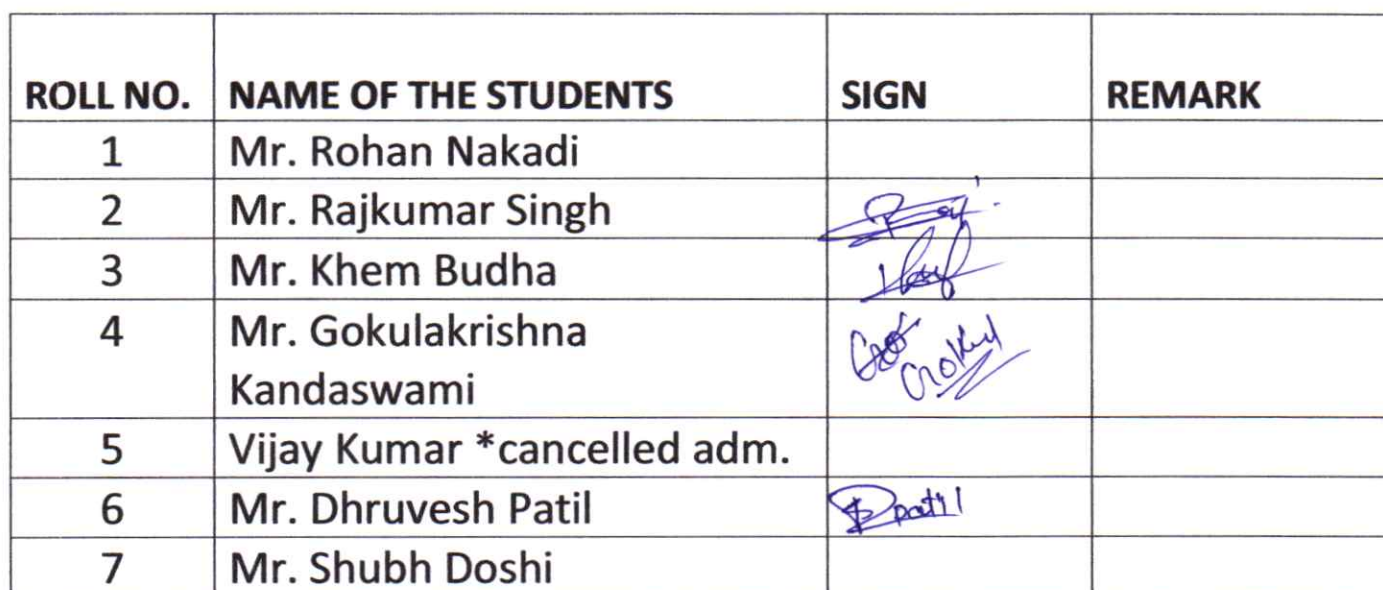 ROLL NO. NAME OF THE STUDENTS SIGN REMARK
1 Mr. Rohan Nakadi
2 Mr. Rajkumar Singh Raj
3 Mr. Khem Budha
4 Mr. Gokulakrishna Gokul
Kandaswami
5 Vijay Kumar *cancelled adm.
6 Mr. Dhruvesh Patil Dpatil
7 Mr. Shubh Doshi